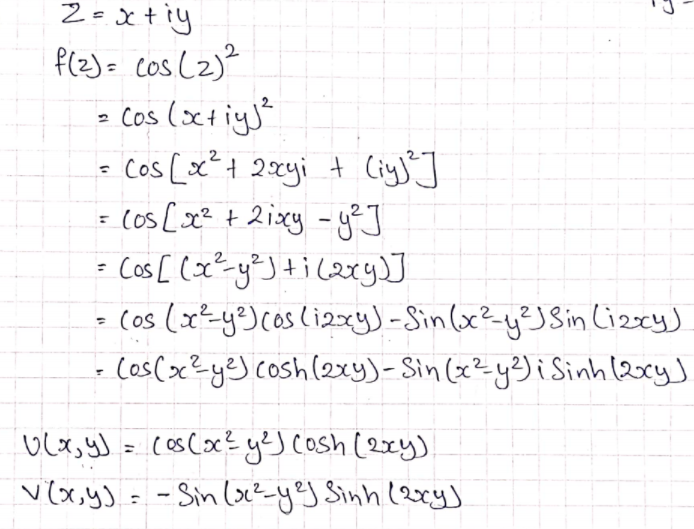 z = x + iy
f(z) = cos(z)²
= cos(x+iy)²
= cos[x² + 2xyi + (iy)²]
= cos[x² + 2ixy - y²]
= cos[(x²-y²)+i(2xy)]
= cos(x²-y²)cos(i2xy)-Sin(x²-y²)Sin(i2xy)
= cos(x²-y²)cosh(2xy)-Sin(x²-y²)iSinh(2xy)
U(x,y) = cos(x²-y²)cosh(2xy)
V(x,y) = -Sin(x²-y²)Sinh(2xy)